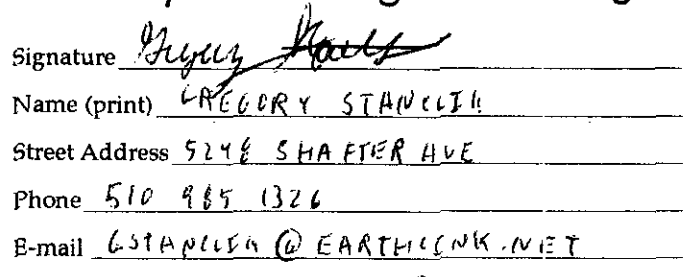 Signature
Name (print) GREGORY STANCLIK
Street Address 5248 SHAFTER AVE
Phone 510 985 1326
E-mail GSTANCLIK @ EARTHLINK.NET